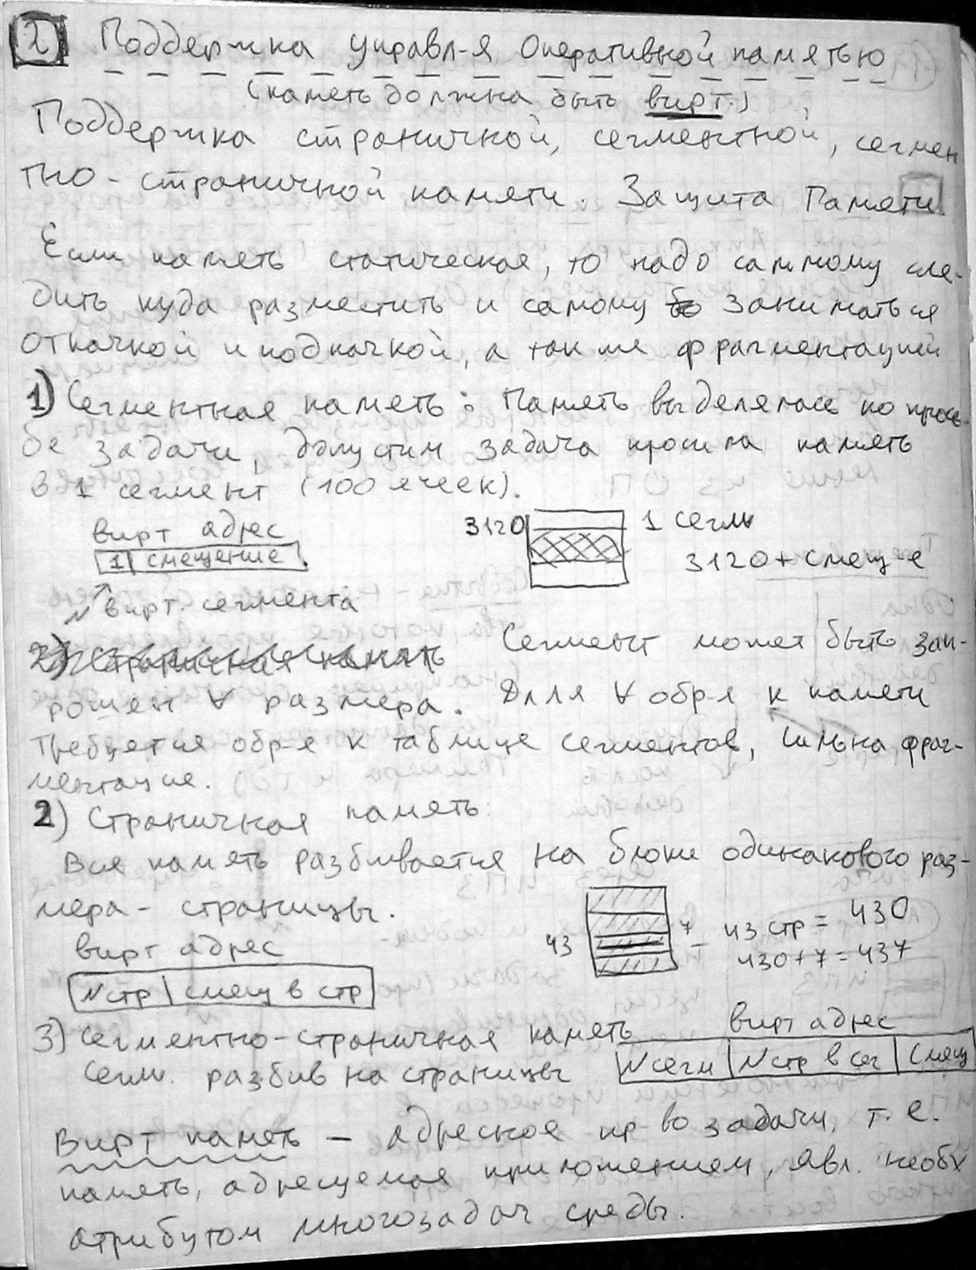 2 Поддержка управл-я оперативной памятью
(память должна быть вирт.)
Поддержка страничной, сегментной, сегмен
тно-страничной памяти. Защита Памяти.
Если память статическая, то надо самому сле-
дить куда разместить и самому заниматься
откачкой и подкачкой, а так же фрагментацией
1) Сегментная память: Память выделялась по прось-
бе задачи, допустим задача просила память
в 1 сегмент (100 ячеек).
вирт адрес
1 | смещение
N вирт. сегмента
3120
1 сегм
3120 + смещ-е
2) Страничная память
Сегмент может быть зап-
рошен ∀ размера. Для ∀ обр-я к памяти
требуется обр-е к таблице сегментов, сильна фраг-
ментацие.
2) Страничная память:
Вся память разбивается на блоки одинакового раз-
мера - страницы.
вирт адрес
N стр | смещ в стр
43
7
43 стр = 430
430+7=437
3) Сегментно-страничная память
Сегм. разбив на страницы
вирт адрес
N сегм | N стр в сег | Смещ
Вирт память – адресное пр-во задачи, т.е.
память, адресуемая приложением, явл. необх
атрибутом многозадач среды.